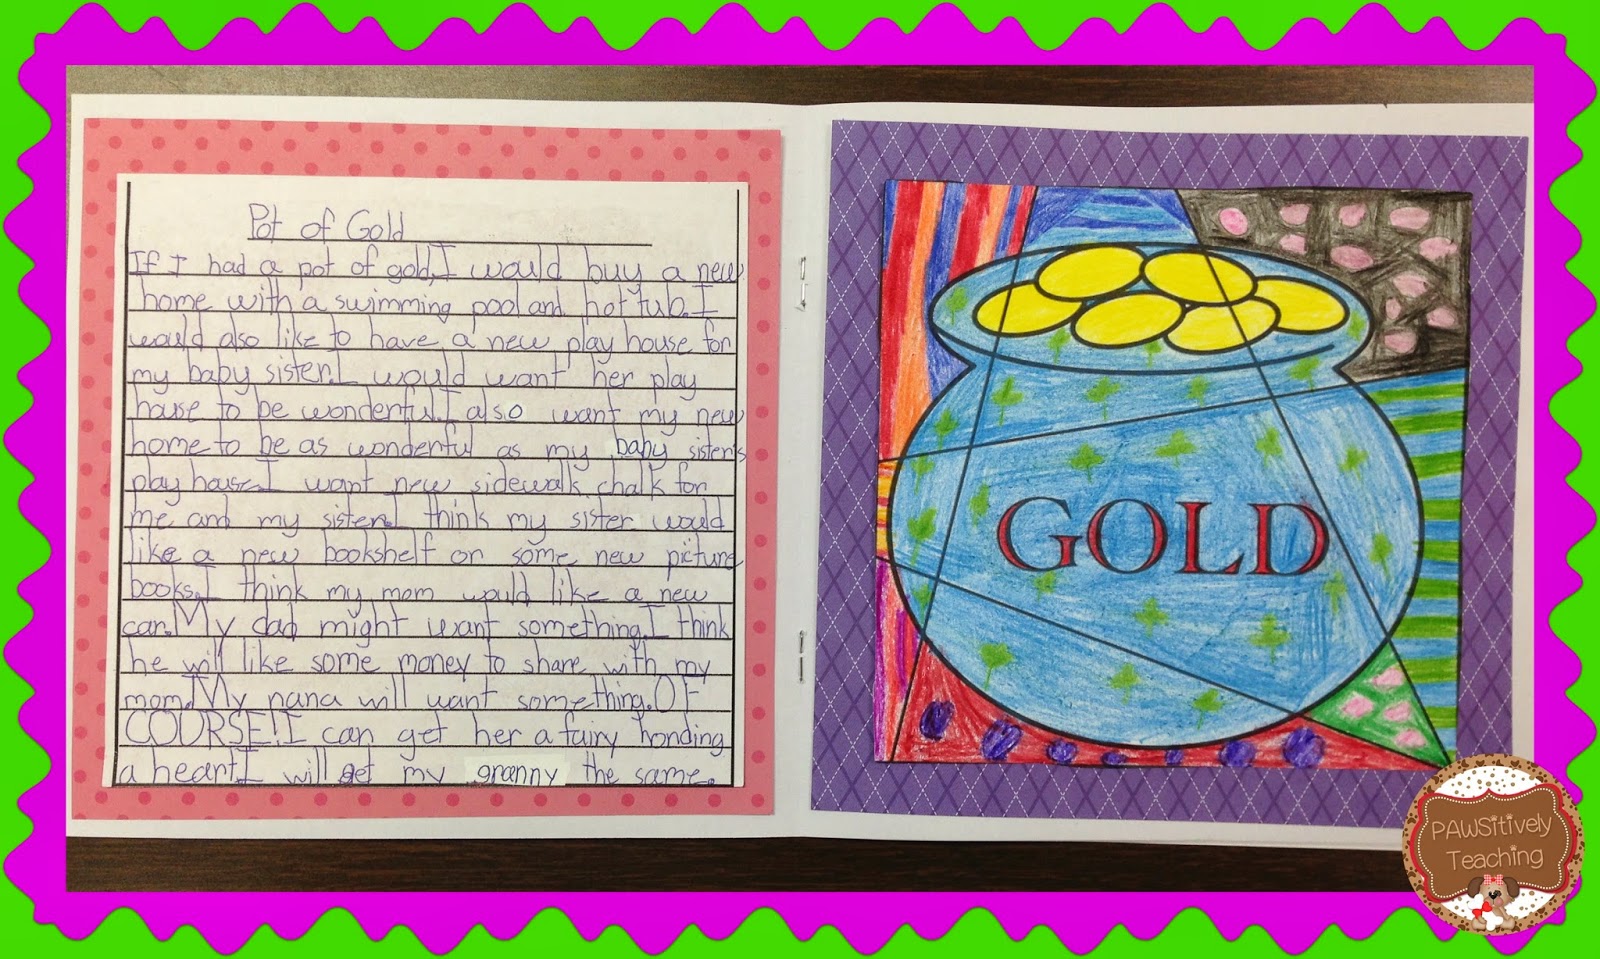 Pot of Gold
If I had a pot of gold, I would buy a new
home with a swimming pool and hot tub. I
would also like to have a new play house for
my baby sister. I would want her play
house to be wonderful. I also want my new
home to be as wonderful as my baby sister's
play house. I want new sidewalk chalk for
me and my sister. I think my sister would
like a new bookshelf or some new picture
books. I think my mom would like a new
car. My dad might want something. I think
he will like some money to share with my
mom. My nana will want something. OF
COURSE! I can get her a fairy honding
a heart. I will get my granny the same.
GOLD
PAWSitively
Teaching